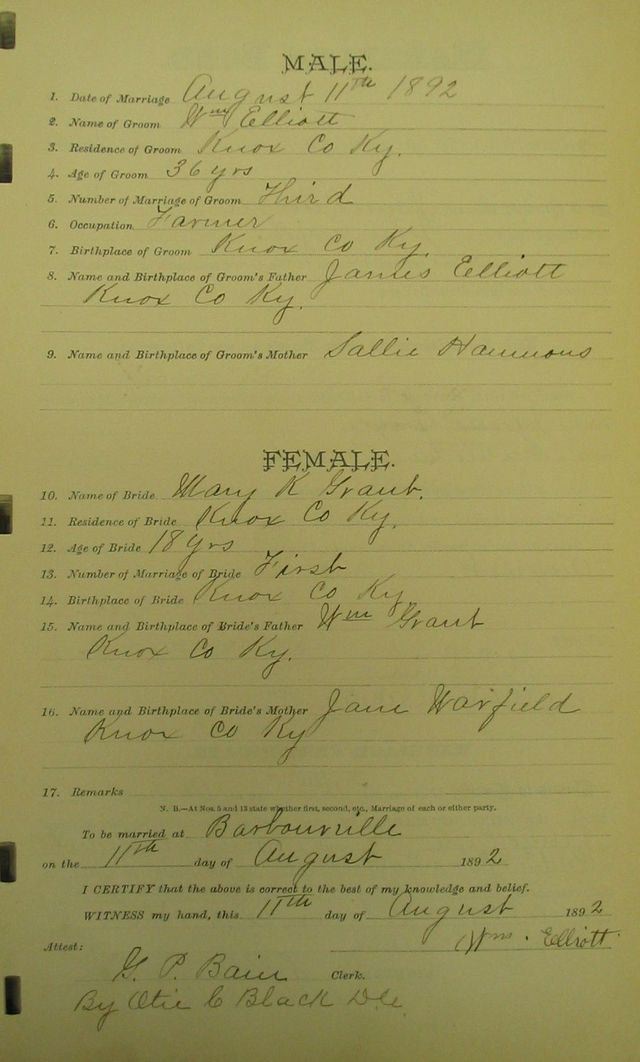 MALE.
1. Date of Marriage August 11th 1892
2. Name of Groom Wm Elliott
3. Residence of Groom Knox Co Ky.
4. Age of Groom 36 yrs
5. Number of Marriage of Groom Third
6. Occupation Farmer
7. Birthplace of Groom Knox Co Ky.
8. Name and Birthplace of Groom's Father James Elliott
Knox Co Ky.
9. Name and Birthplace of Groom's Mother Sallie Hammons
FEMALE.
10. Name of Bride Mary K Grant.
11. Residence of Bride Knox Co Ky.
12. Age of Bride 18 yrs
13. Number of Marriage of Bride First
14. Birthplace of Bride Knox Co Ky.
15. Name and Birthplace of Bride's Father Wm Grant
Knox Co Ky.
16. Name and Birthplace of Bride's Mother Jane Warfield
Knox Co Ky
17. Remarks
N. B.—At Nos. 5 and 13 state whether first, second, etc., Marriage of each or either party.
To be married at Barbourville
on the 11th day of August 1892
I CERTIFY that the above is correct to the best of my knowledge and belief.
WITNESS my hand, this 11th day of August 1892
Wm. Elliott
Attest:
G. P. Bain Clerk.
By Otie C Black D.C.